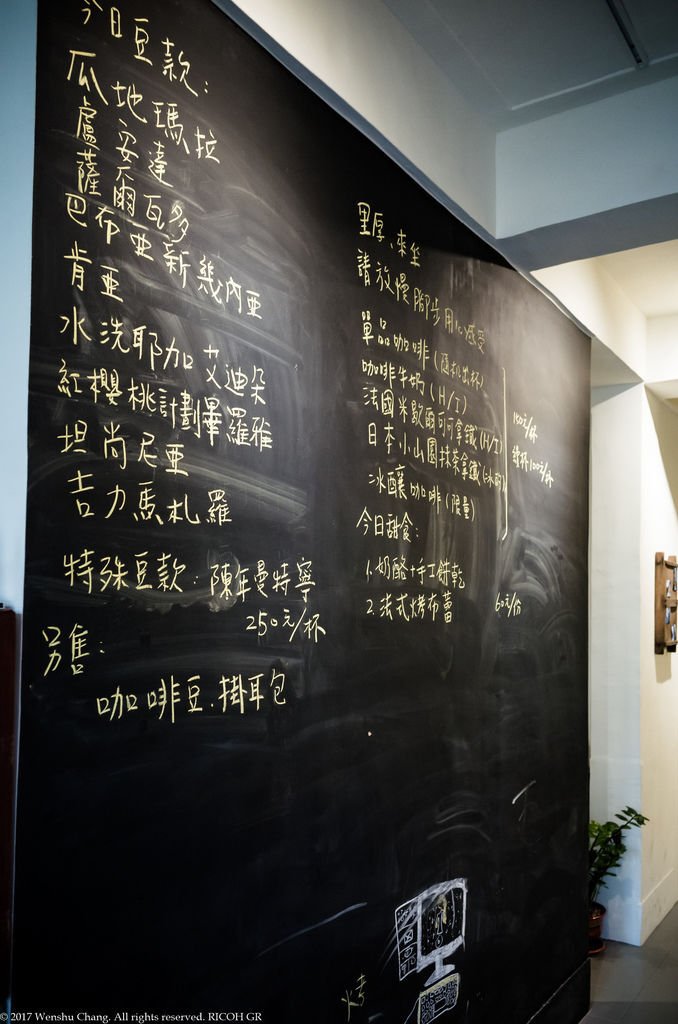 今日豆款:
瓜地瑪拉
盧安達
薩爾瓦多
巴布亞新幾內亞
肯亞
水洗耶加 艾迪朵
紅櫻桃計劃畢羅雅
坦尚尼亞
吉力馬札羅
特殊豆款:陳年曼特寧
250元/杯
另售:
咖啡豆.掛耳包
里厚、來坐
請放慢腳步用心感受
單品咖啡(隨机出杯)
咖啡牛奶(H/I)
法國米歇爾可可拿鐵(H/I)
日本小山園抹茶拿鐵(冰的)
冰釀咖啡(限量)
150元/杯
續杯100元/杯
今日甜食:
1.奶酪+手工餅乾
2.法式烤布蕾 60元/份
烤
© 2017 Wenshu Chang. All rights reserved. RICOH GR